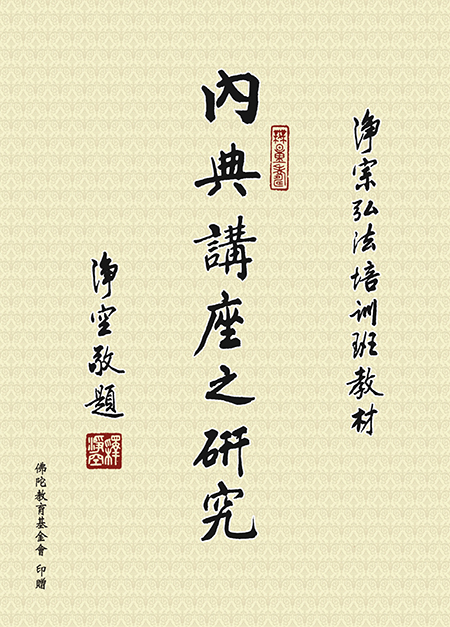 淨宗弘法培训班教材
內典講座之研究
淨空敬題
釋淨空
佛陀教育基金會 印贈